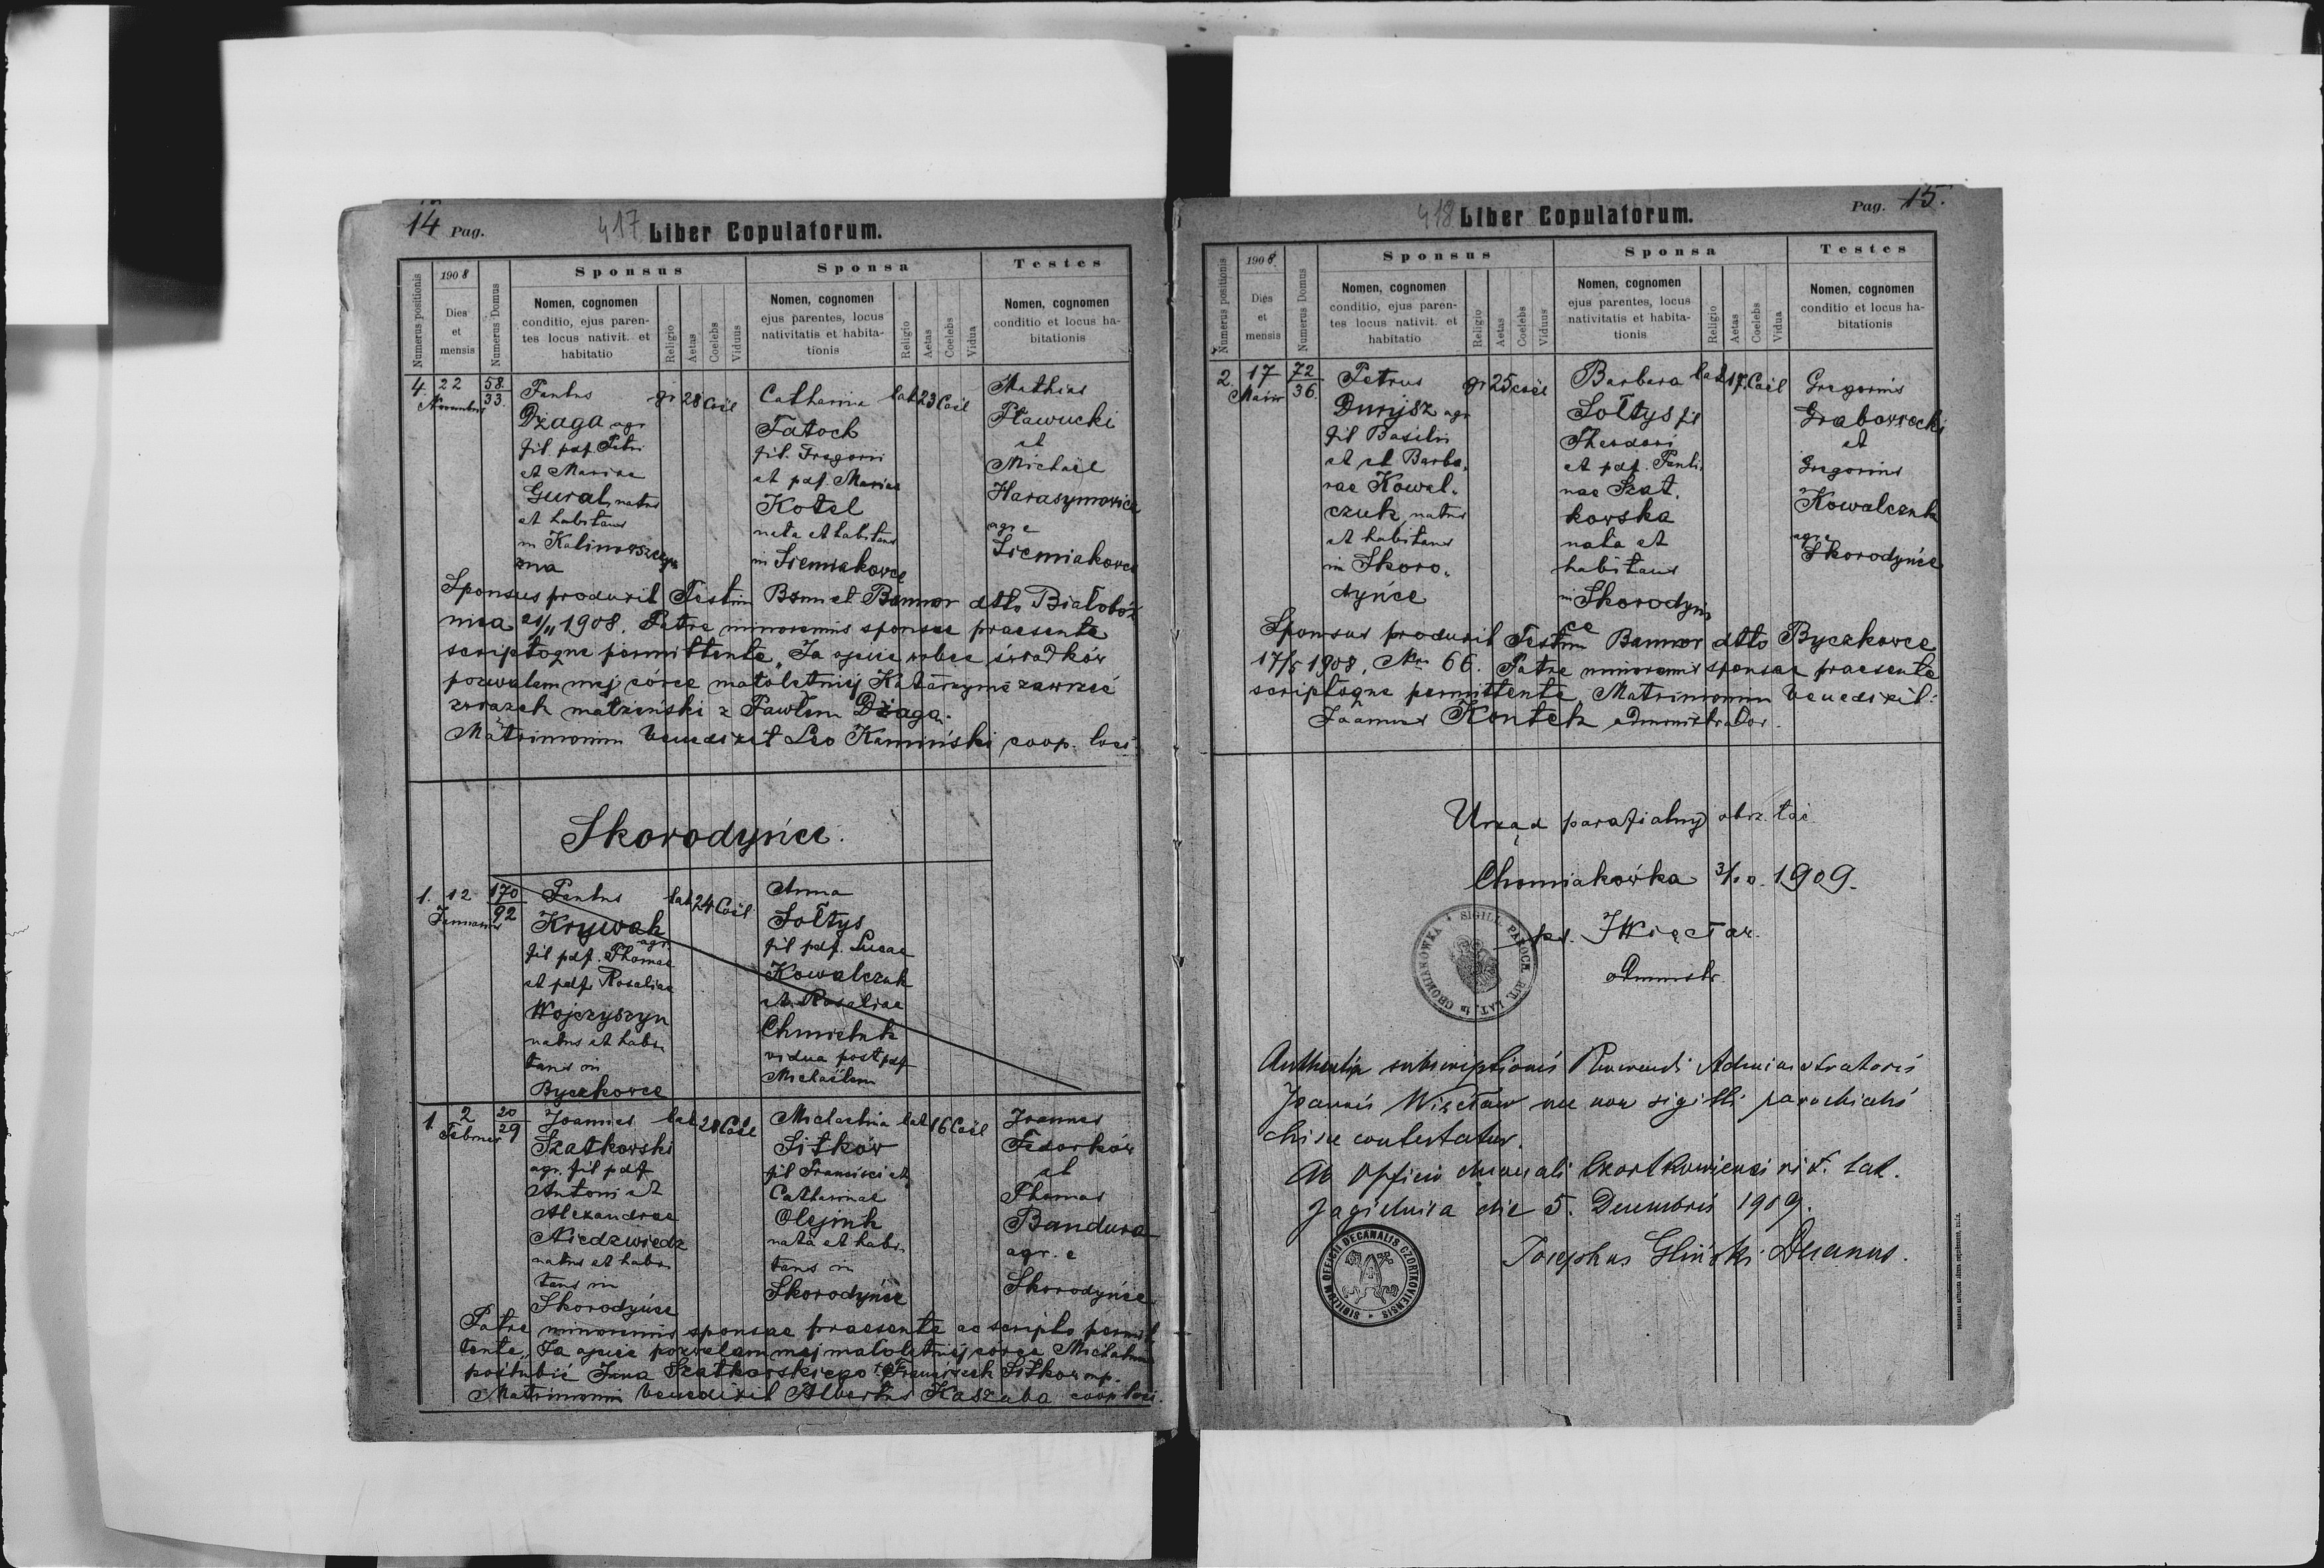 14 Pag.
417 Liber Copulatorum.
Numerus positionis
1908
Dies
et
mensis
Numerus Domus
Sponsus
Nomen, cognomen
conditio, ejus paren-
tes locus nativit. et
habitatio
Religio
Aetas
Coelebs
Viduus
Sponsa
Nomen, cognomen
ejus parentes, locus
nativitatis et habita-
tionis
Religio
Aetas
Coelebs
Vidua
Testes
Nomen, cognomen
conditio et locus ha-
bitationis
4. 22
Novembris
58
33.
Paulus
Dżaga agr
fil. pdf. Petri
et Mariae
Gural, natus
et habitans
in Kalinowszczy
zna
gr 28 Coël
Catharina
Tatoch
fil. Gregorii
et pdf. Mariae
Kotel
nata et habitans
in Siemiakowce
lat 23 Coël
Mathias
Pławucki
et
Michaël
Harasymowicz
agr e
Siemiakowce
Sponsus produxit Testim Bann dtto Białobóż
nica 21/11 1908. Patre minorennis sponsae praesente
scriptoque permittente „Ja ojciec wobec świadków
pozwalam mej córce małoletniej Katarzynie zawrzeć
związek małżeński z Pawłem Dżaga.
Matrimonium benedixit Leo Kamiński coop. loci.
Skorodyńce.
1. 12
Januarii
170
92
Paulus
Krywak
agr.
fil pdf. Thomae
et pdf. Rosaliae
Wojczyszyn
natus et habi
tans in
Byczkowce
lat 24 Coël
Anna
Sołtys
fil pdf. Lucae
Kowalczuk
et Rosaliae
Chmieluk
vidua post pdf
Michaëlem
1. 2
Februar
20
29
Joannes
Szatkowski
agr. fil pdf
Antoni et
Alexandrae
Niedzwiedz
natus et habi
tans in
Skorodyńce
lat 28 Coël
Michaelina
Sitków
fil Francisci et
Catharinae
Olejnik
nata et habi
tans in
Skorodyńce
lat 16 Coël
Joannes
Fedorków
et
Thomas
Bandura
agr. e
Skorodyńce
Patre minorennis sponsae praesente ac scripto permit
tente „Ja ojciec pozwalam mej małoletniej córce Michalinie
poślubić Jana Szatkowskiego Franciszek Sitkow mp.
Matrimonium benedixit Albertus Kaszuba coop loci.
418 Liber Copulatorum.
Pag. 15.
Numerus positionis
1908.
Dies
et
mensis
Numerus Domus
Sponsus
Nomen, cognomen
conditio, ejus paren-
tes locus nativit. et
habitatio
Religio
Aetas
Coelebs
Viduus
Sponsa
Nomen, cognomen
ejus parentes, locus
nativitatis et habita-
tionis
Religio
Aetas
Coelebs
Vidua
Testes
Nomen, cognomen
conditio et locus ha-
bitationis
2. 17
Maii
72
36.
Petrus
Duryjsz agr
fil Basilii
et et Barba.
rae Kowal.
czuk, natus
et habitans
in Skoro.
dyńce
gr 25 coël
Barbara
Sołtys fil
Theodori
et pdf. Pauli.
nae Szat.
kowska
nata et
habitans
in Skorodyń
ce
lat 17. Coël
Gregorius
Grabowiecki
et
Gregorius
Kowalczuk
agr e
Skorodyńce
Sponsus produxit Testim Bannor dtto Byczkowce
17/5 1908, Nro 66. Patre minorennis sponsae praesente
scriptoque permittente, Matrimonium benedixit:
Joannes Kontek administrator.
Urząd parafialny obrz. łać.
Chomiakówka 3/10. 1909.
JWięcław.
Admnstr.
SIGILL. PAROCH. RIT. LAT. in CHOMIAKOWKA
Authentia subscriptionis Reverendi Administratoris
Joannis Więcław nec non sigilli parochialis
hisce contestatur.
Ab Officio decanali Czortkowiensi rit. lat.
Jagielnica die 5. Decembris 1909.
Josephus Gliński Decanus.
SIGILLUM OFFICII DECANALIS CZORTKOVIENSIS